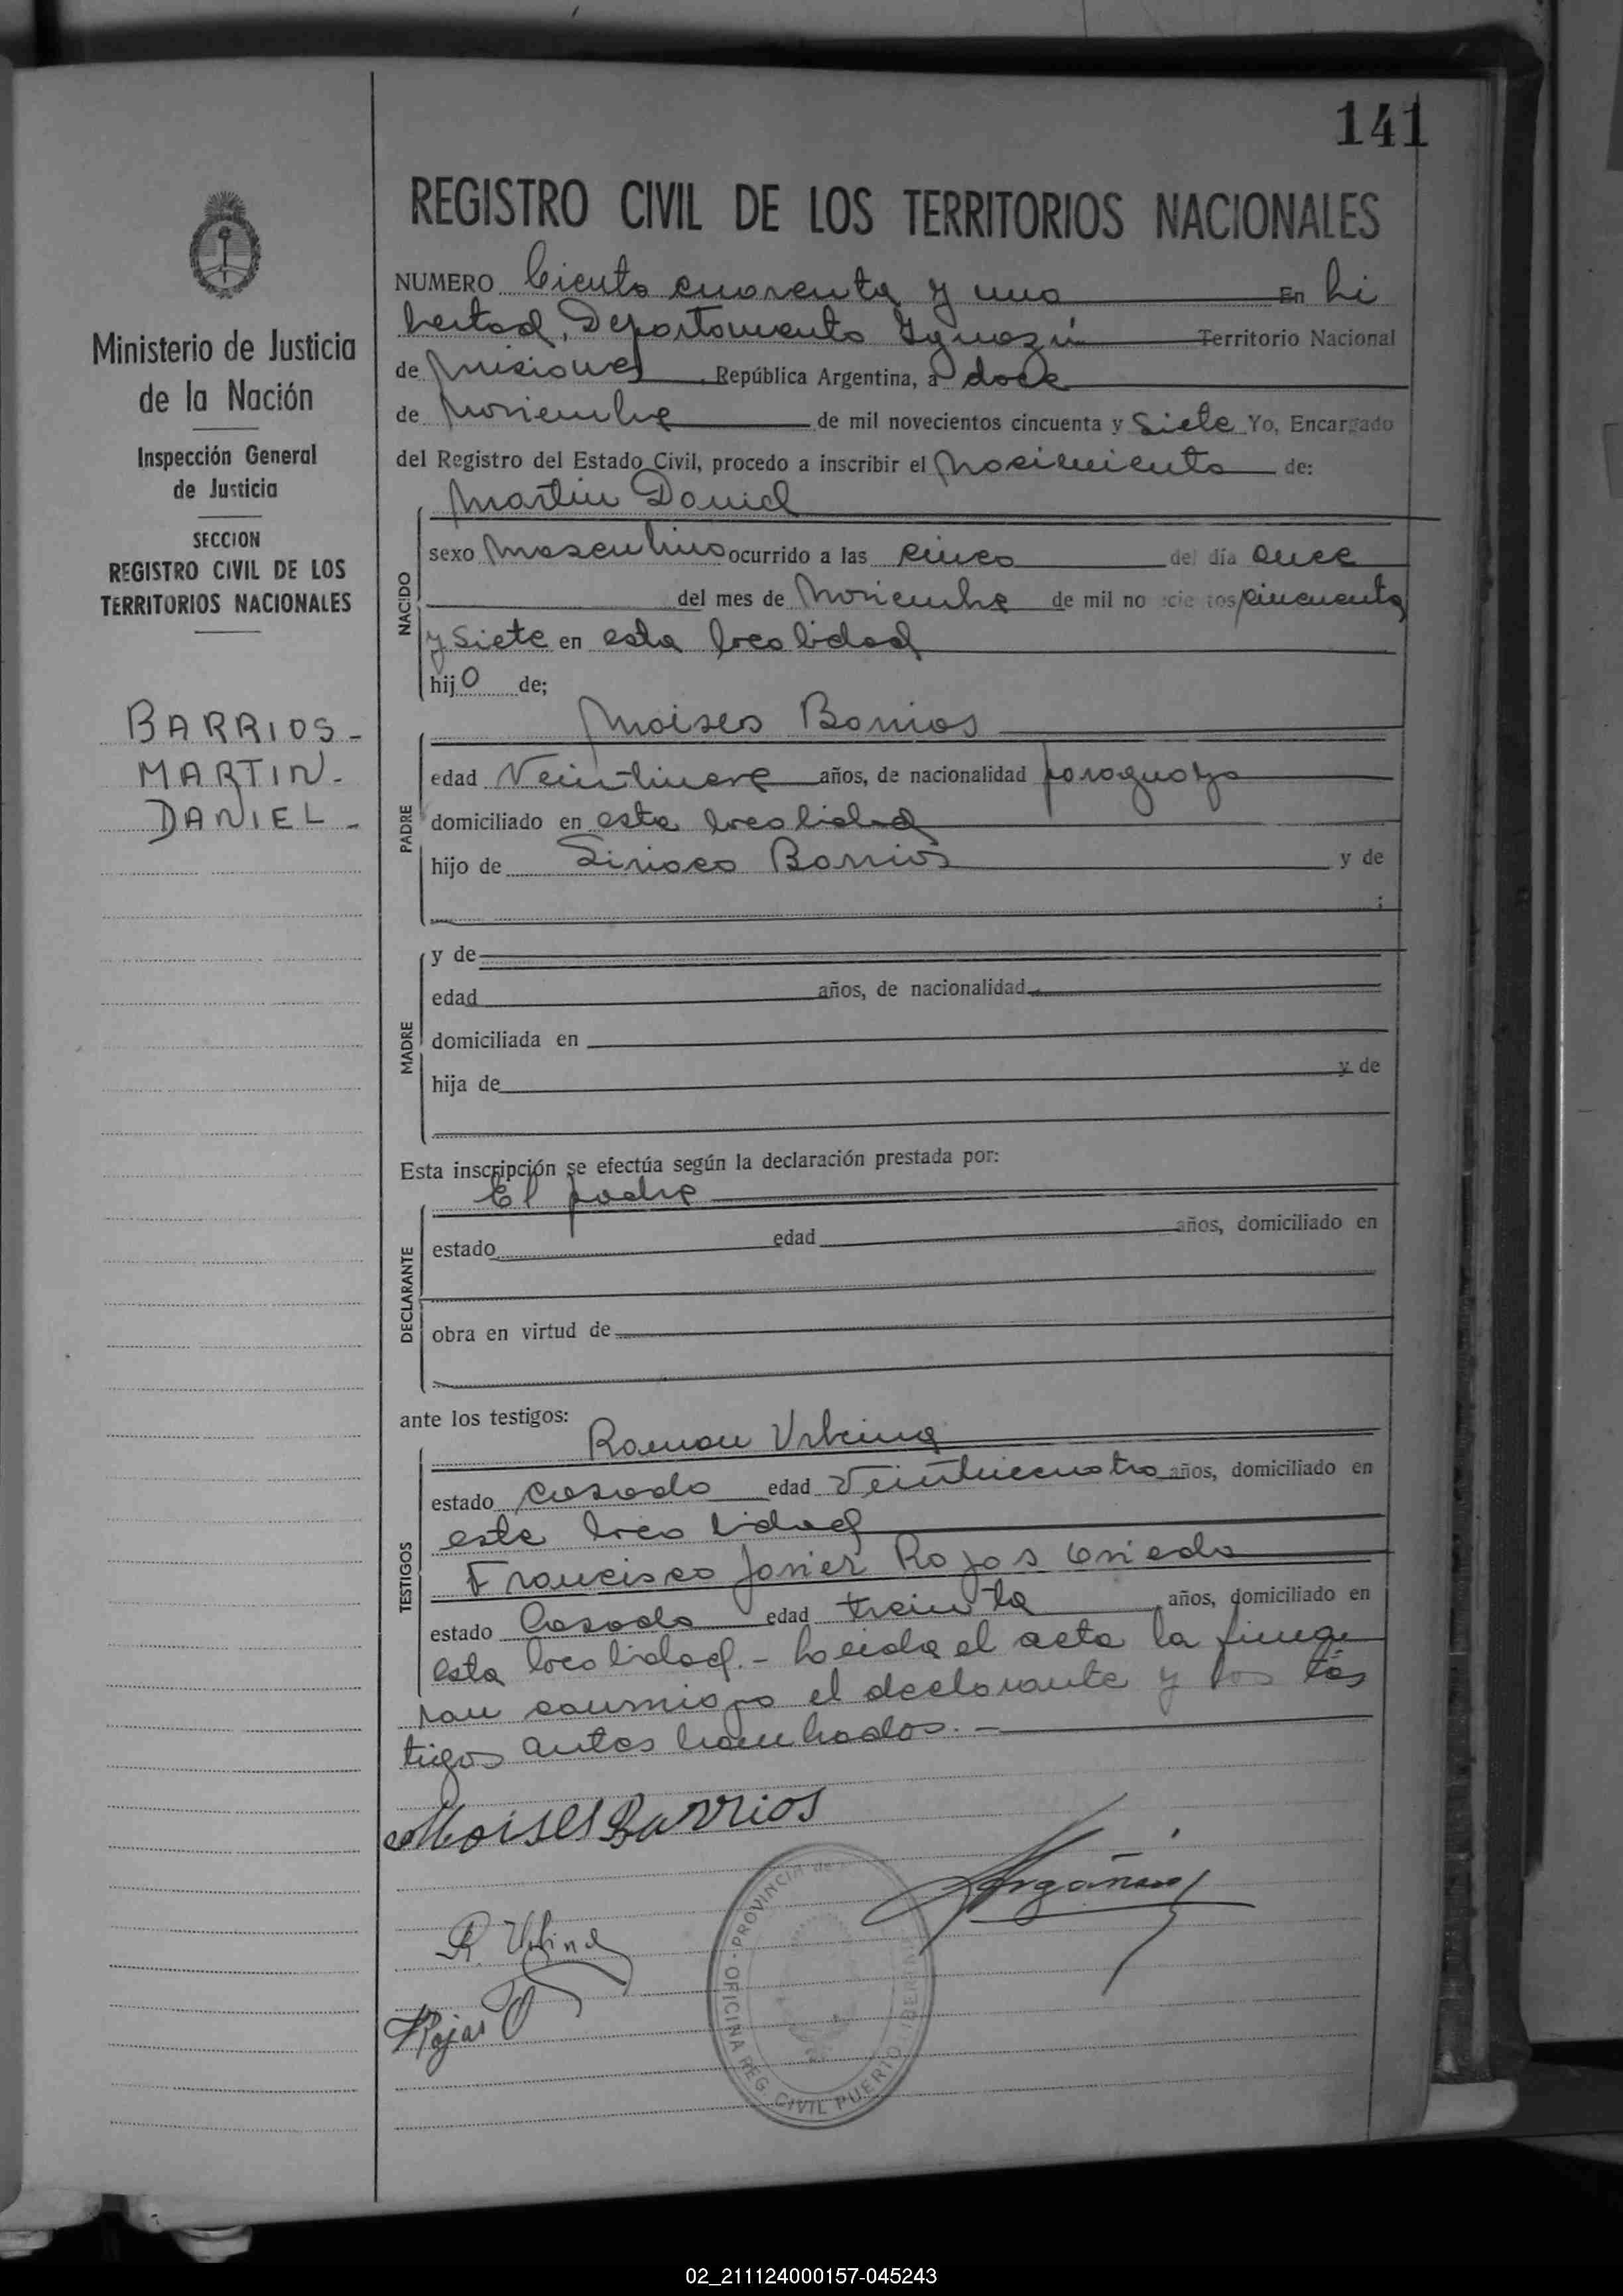 141
REGISTRO CIVIL DE LOS TERRITORIOS NACIONALES
Ministerio de Justicia
de la Nación
Inspección General
de Justicia
SECCION
REGISTRO CIVIL DE LOS
TERRITORIOS NACIONALES
BARRIOS-
MARTIN-
DANIEL-
NUMERO Ciento cuarenta y uno En Li
bertad, Departamento Iguazú Territorio Nacional
de Misiones República Argentina, a doce
de Noviembre de mil novecientos cincuenta y Siete Yo, Encargado
del Registro del Estado Civil, procedo a inscribir el Nacimiento de:
NACIDO
Martin Daniel
sexo Masculino ocurrido a las cinco del día once
del mes de Noviembre de mil novecientos cincuenta
y Siete en esta localidad
hijo de;
PADRE
Moises Barrios
edad Veintinueve años, de nacionalidad paraguaya
domiciliado en esta localidad
hijo de Siriaco Barrios y de
;
MADRE
y de
edad años, de nacionalidad
domiciliada en
hija de y de
Esta inscripción se efectúa según la declaración prestada por:
DECLARANTE
El padre
estado edad años, domiciliado en
obra en virtud de
ante los testigos:
TESTIGOS
Ramon Urbina
estado Casado edad Veinticuatro años, domiciliado en
esta localidad
Francisco Javier Rojas Oviedo
estado Casado edad treinta años, domiciliado en
esta localidad.- Leida el acta la firma
ran conmigo el declarante y los tes
tigos antes nombrados.-
Moises Barrios
R. Urbina
Rojas O
OFICINA REG. CIVIL PUERTO
PROVINCIA de
02_211124000157-045243